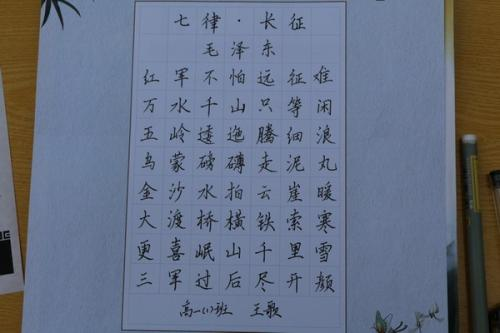 七律·长征
毛泽东
红军不怕远征难
万水千山只等闲
五岭逶迤腾细浪
乌蒙磅礴走泥丸
金沙水拍云崖暖
大渡桥横铁索寒
更喜岷山千里雪
三军过后尽开颜
高一(1)班 王歌